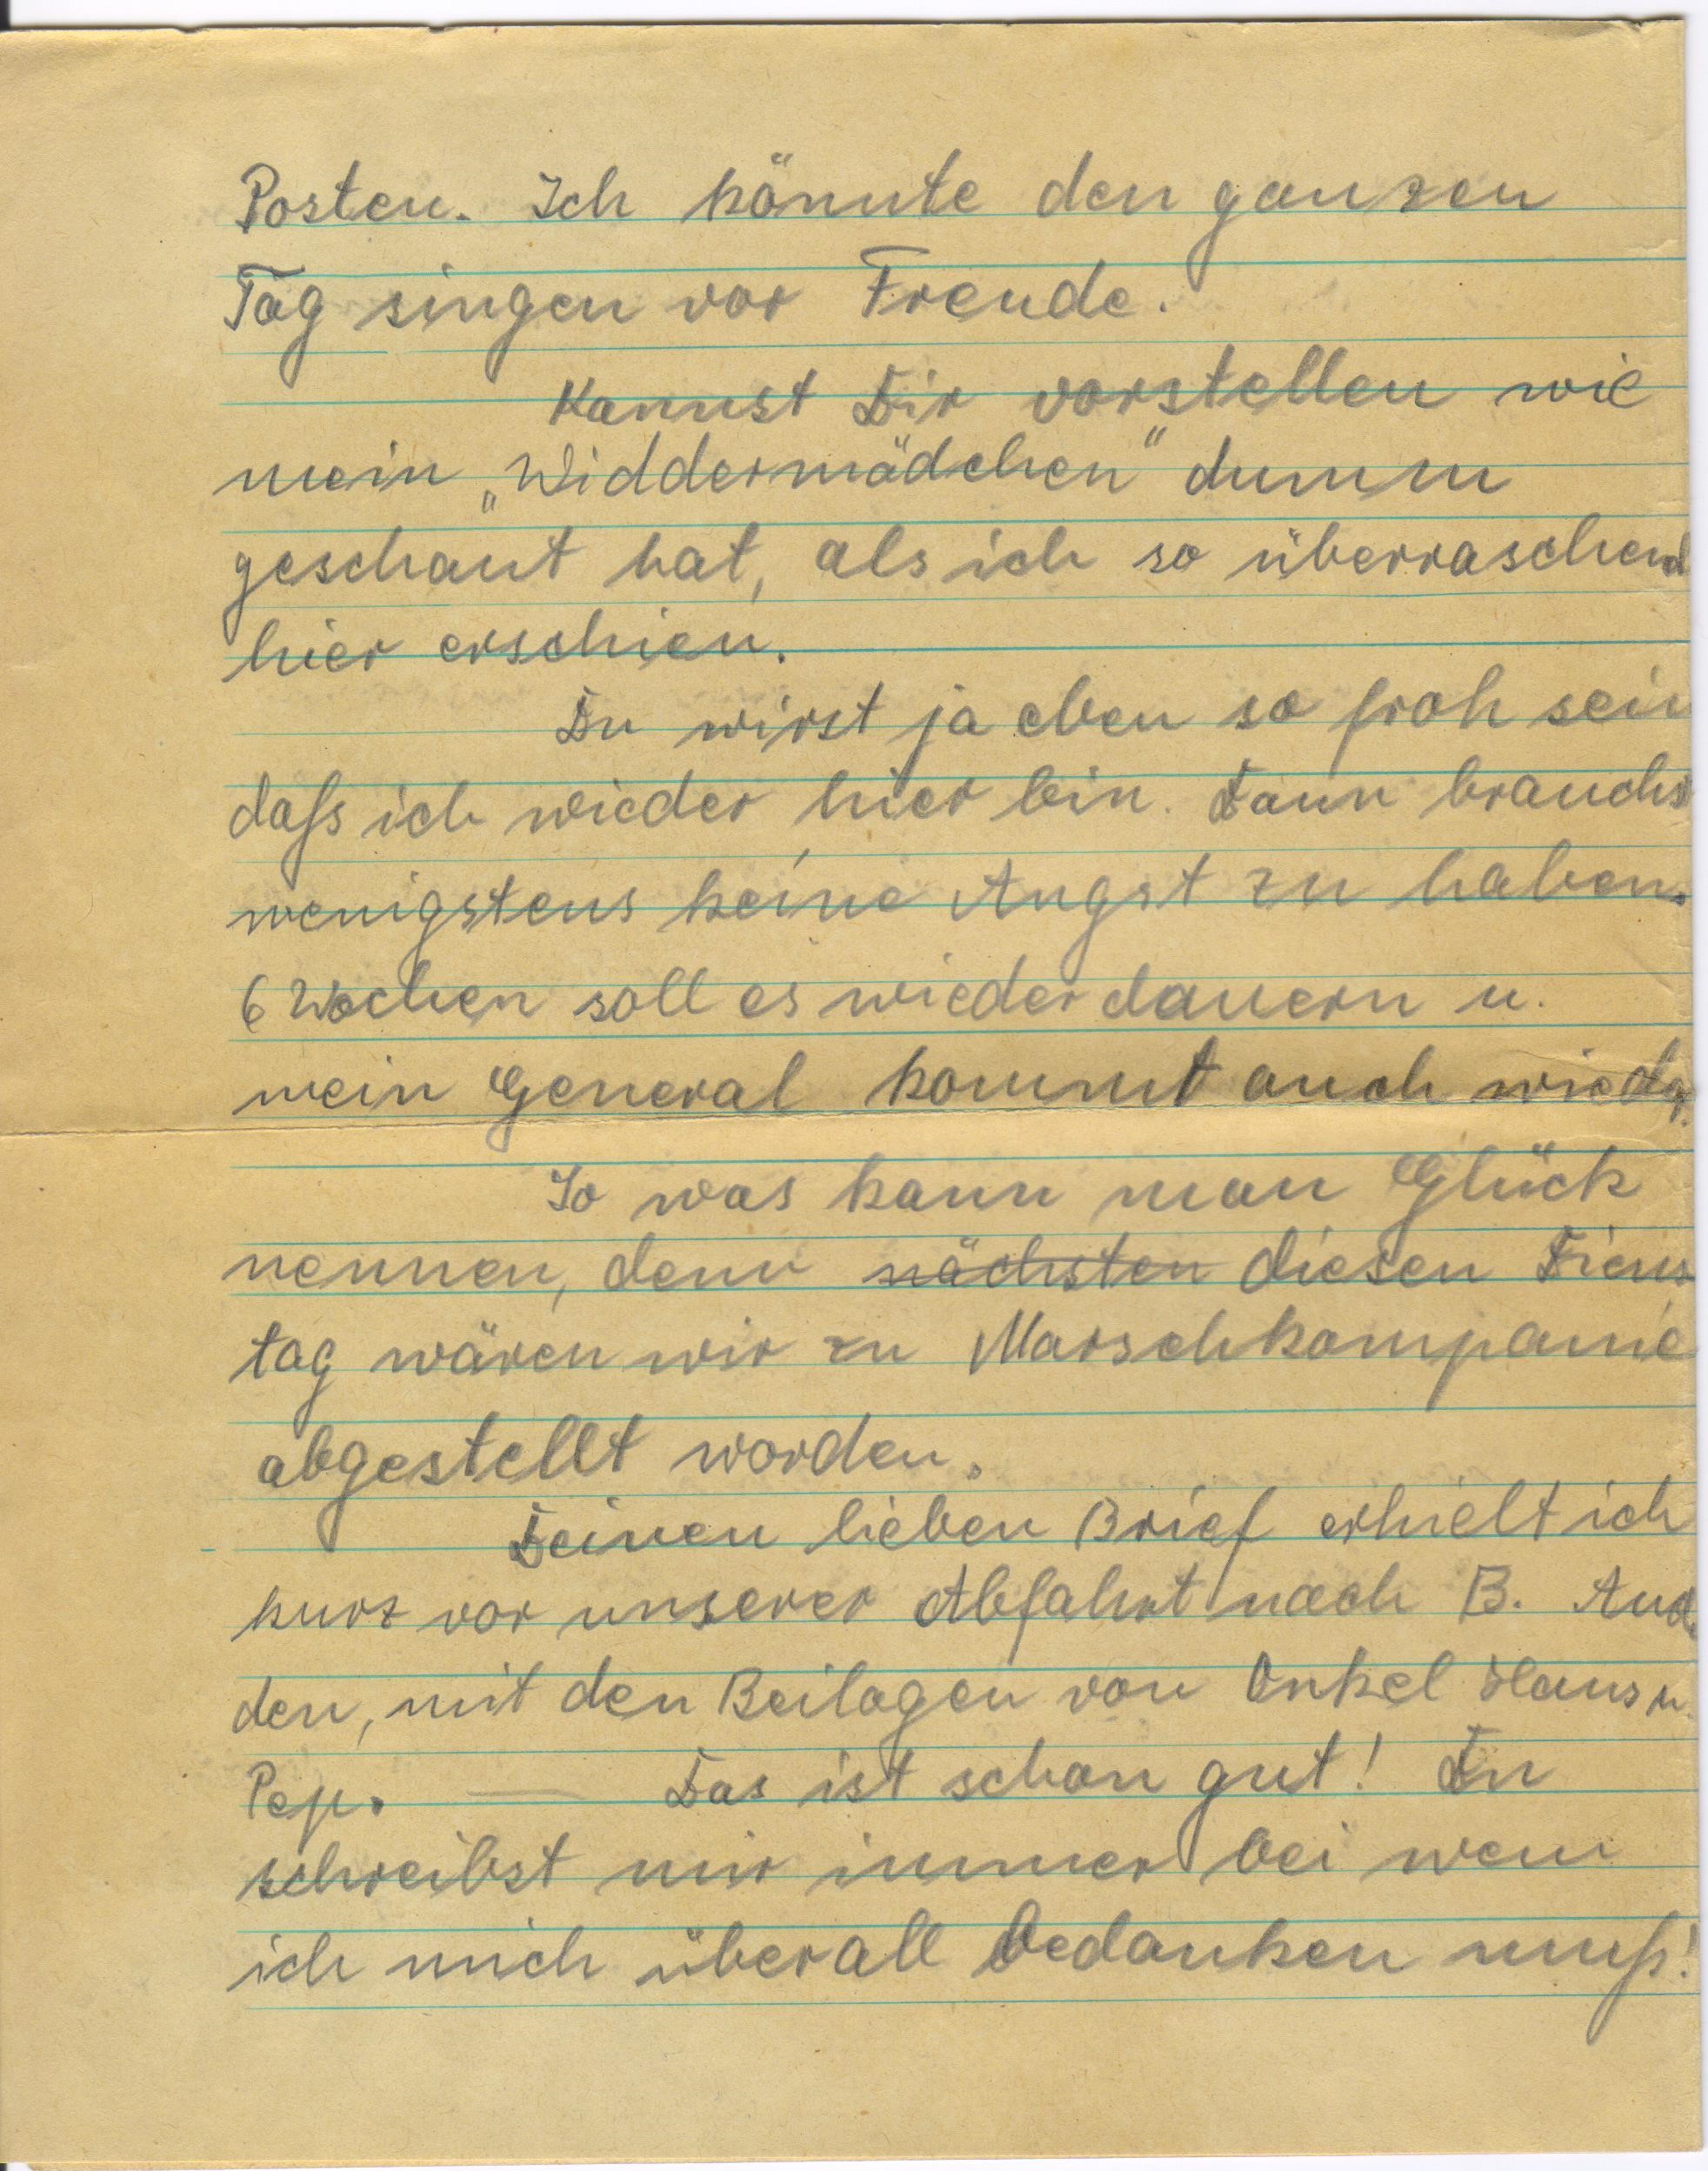 Posten. Ich könnte den ganzen
Tag singen vor Freude.
Kannst Dir vorstellen wie
mein „Widdermädchen" dumm
geschaut hat, als ich so überraschend
hier erschien.
Du wirst ja eben so froh sein
daß ich wieder hier bin. Dann brauchst
wenigstens keine Angst zu haben.
6 Wochen soll es wieder dauern u.
mein General kommt auch wieder.
So was kann man Glück
nennen, denn nächsten diesen Diens
tag wären wir zu Marschkompanie
abgestellt worden.
Deinen lieben Brief erhielt ich
kurz vor unserer Abfahrt nach B.
den, mit den Beilagen von Onkel Hans u.
Pep. — Das ist schon gut! Du
schreibst mir immer bei wem
ich mich überall bedanken muß!